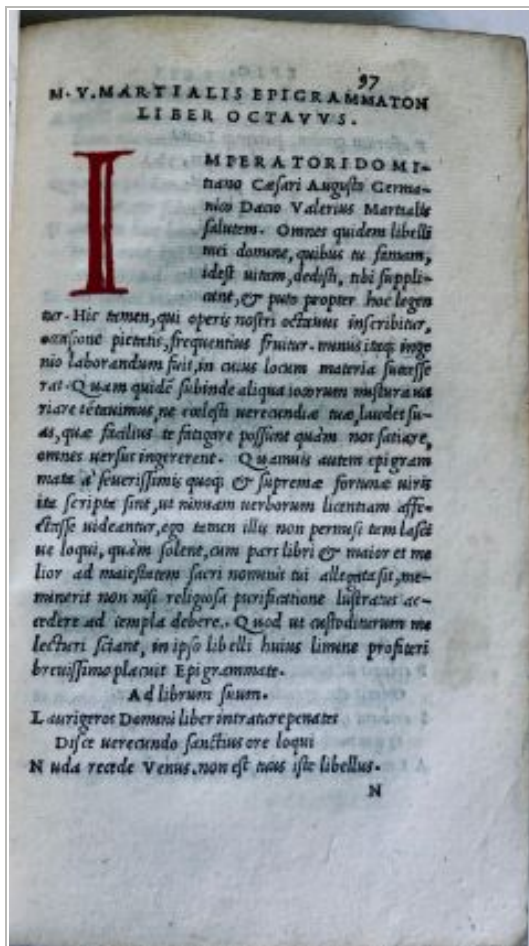 97
M. V. MARTIALIS EPIGRAMMATON
LIBER OCTAVVS.
IMPERATORI DOMI-
tiano Cæsari Augusto Germa-
nico Dacio Valerius Martialis
salutem. Omnes quidem libelli
mei domine, quibus tu famam,
idest uitam, dedisti, tibi suppli-
cant, & puto propter hoc legen
tur. Hic tamen, qui operis nostri octauus inscribitur,
occasione pietatis, frequentius fruitur. minus itaq; inge
nio laborandum fuit, in cuius locum materia successe
rat. Quam quidē subinde aliqua iocorum mistura ua
riare tētauimus, ne cœlesti uerecundiæ tuæ, laudes su-
as, quæ facilius te fatigare possunt quàm nos satiare,
omnes uersus ingererent. Quamuis autem epigram
mata à seuerissimis quoq; & supremæ fortunæ uiris
ita scripta sint, ut mimicam uerborum licentiam affe-
ctasse uideantur, ego tamen illis non permisi tam lasci
ue loqui, quàm solent, cum pars libri & maior et me
lior ad maiestatem sacri nominis tui allegata sit, me-
minerit non nisi religiosa purificatione lustratus ac-
cedere ad templa debere. Quod ut custoditurum me
lecturi sciant, in ipso libelli huius limine profiteri
breuissimo placuit Epigrammate.
Ad librum suum.
Laurigeros Domini liber intrature penates
Disce uerecundo sanctius ore loqui
Nuda recede Venus. non est tuus iste libellus.
N